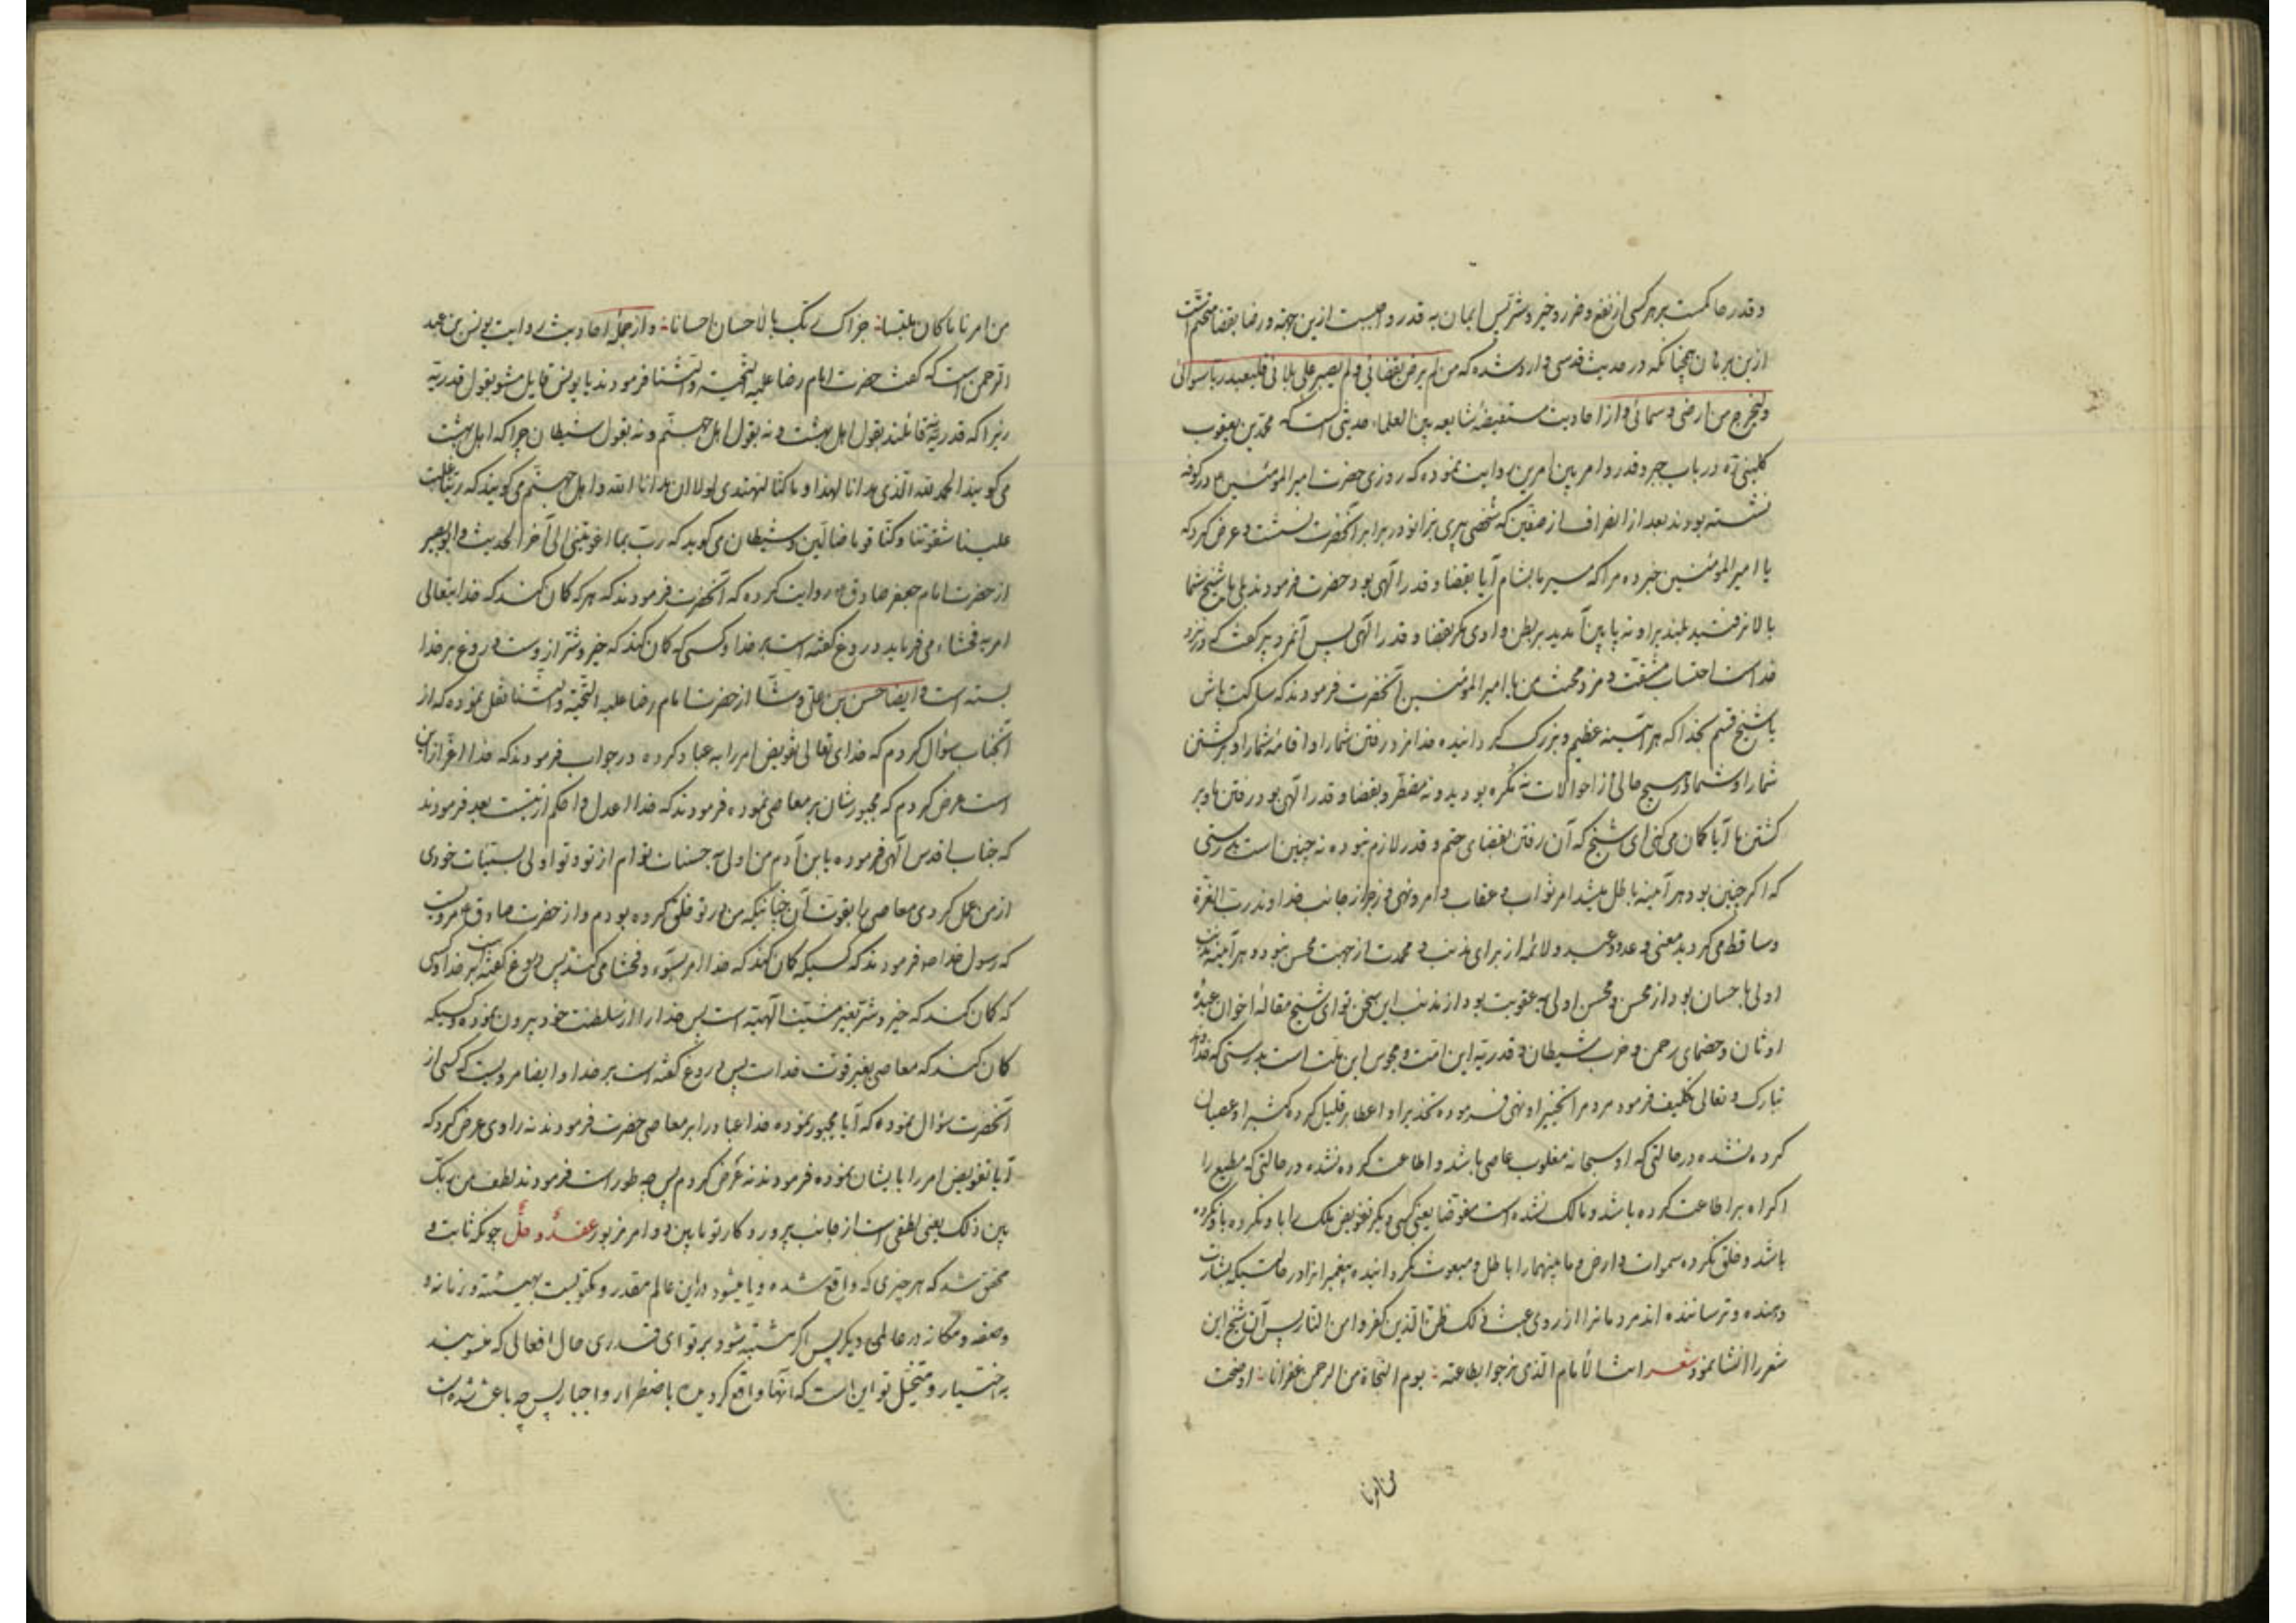 و قدر حاکمست بر هر کسی از نفع و ضرر و خیر و شر پس ایمان به قدر واجبست ازین جهة و رضا بقضا متحتم است
ازین برهان همچنانکه در حدیث قدسی وارد شده که من لم یرض بقضائی و لم یصبر علی بلائی فلیعبد ربا سوائی
و لیخرج من ارضی و سمائی و از احادیث مستفیضهٔ شایعه بین العلماء حدیثی است که محمد بن یعقوب
کلینی ره در باب جبر و قدر و امر بین امرین روایت نموده که روزی حضرت امیر المؤمنین ع در کوفه
نشسته بودند بعد از انصراف از صفین که شخصی پیری بزانو در برابر آنحضرت نشست و عرض کرد که
یا امیر المؤمنین خبر ده مرا که مسیر ما بشام آیا بقضا و قدر الهی بود حضرت فرمودند بلی یا شیخ شما
بالا نرفتید بلندیرا و نه پایین آمدید بر بطن وادی مگر بقضا و قدر الهی پس آنمرد پیر گفت که در نزد
خداست احتساب مشقت و مزد محنت من یا امیر المؤمنین آنحضرت فرمودند که ساکت باش
یا شیخ قسم بخدا که هر آینه عظیم و بزرگ گردانیده خدا مزد رفتن شما را و اقامهٔ شما را و برگشتن
شما را و شما در هیچ حالی از احوالات نه مکره بودید و نه مضطر و بقضا و قدر الهی بود رفتن ها و بر
گشتن ها آیا گمان می کنی ای شیخ که آن رفتن بقضای حتم و قدر لازم بوده نه چنین است بدرستی
که اگر چنین بود هر آینه باطل میشد امر ثواب و عقاب و امر و نهی و زجر از جانب خداوند رب العزة
و ساقط می گردید معنی وعد و وعید و لائمه از برای مذنب و محمدت از جهت محسن نبود و هر آینه مذنب
اولی باحسان بود از محسن و محسن اولی به عقوبت بود از مذنب این سخن تو ای شیخ مقالهٔ اخوان عبدهٔ
اوثان و خصمای رحمن و حزب شیطان و قدریه این امت و مجوس این ملت است بدرستی که خداوند
تبارک و تعالی تکلیف فرمود مردمرا تخییرا و نهی فرموده تحذیرا و اعطا بر قلیل کرده کثیرا و عصیان
کرده نشده در حالتی که او سبحانه مغلوب عاصی باشد و اطاعت کرده نشده در حالتی که مطیع را
اکراه بر اطاعت کرده باشد و مالک نشده است مفوضا یعنی کسی دیگر تفویض ملک را با و نکرده
باشد و خلق نکرده سموات و ارض و ما بینهما را باطل و مبعوث نگردانیده پیغمبرانرا در حالتیکه بشارت
دهنده و ترساننده اند مردمانرا از روی عبث ذلک ظن الذین کفروا من النار پس آن شیخ این
شعر را انشا نمود شعر انت الامام الذی نرجوا بطاعته : یوم النجاة من الرحمن غفرانا : اوضحت
من امرنا
من امرنا ما کان ملتبسا : جزاک ربک بالاحسان احسانا : و از جملهٔ احادیث روایت یونس بن عبد
الرحمن است که گفت حضرت امام رضا علیه التحیة و الثنا فرمودند یا یونس قایل مشو بقول قدریه
زیرا که قدریه نه قائلند بقول اهل بهشت و نه بقول اهل جهنم و نه بقول شیطان چرا که اهل بهشت
می گویند الحمد لله الذی هدانا لهذا و ما کنا لنهتدی لولا ان هدانا الله و اهل جهنم می گویند که ربنا غلبت
علینا شقوتنا و کنا قوما ضالین و شیطان می گوید که رب بما اغویتنی الی آخر الحدیث و ابو بصیر
از حضرت امام جعفر صادق ع روایت کرده که آنحضرت فرمودند که هر که گمان کند که خدایتعالی
امر به فحشاء می فرماید دروغ گفته است بر خدا و کسی که گمان کند که خیر و شر از وست دروغ بر خدا
بسته است و ایضا حسن بن علی وشا از حضرت امام رضا علیه التحیة و الثنا نقل نموده که از
آنجناب سؤال کردم که خدای تعالی تفویض امر را به عباد کرده در جواب فرمودند که خدا اعز ازین
است عرض کردم که مجبورشان بر معاصی نموده فرمودند که خدا اعدل و احکم از ینست بعد فرمودند
که جناب اقدس الهی فرموده یا بن آدم من اولی به حسنات توام از تو و تو اولی بسیئات خودی
از من عمل کردی معاصی را بقوت آن چنانیکه من در تو خلق کرده بودم و از حضرت صادق ع مرویست
که رسول خدا ص فرمودند که کسیکه گمان کند که خدا امر بسوء و فحشا می کند پس دروغ گفته است بر خدا و کسی
که گمان کند که خیر و شر بغیر مشیت الهیه است پس خدا را از سلطنت خود بیرون نموده و کسیکه
گمان کند که معاصی بغیر قوت خداست پس دروغ گفته است بر خدا و ایضا مرویست که کسی از
آنحضرت سؤال نموده که آیا مجبور نموده خدا عباد را بر معاصی حضرت فرمودند نه راوی عرض کرد که
آیا تفویض امر را بایشان نموده فرمودند نه عرض کردم پس چه طور است فرمودند لطف من ربک
بین ذلک یعنی لطفی است از جانب پروردگار تو ما بین دو امر مزبور عقدٌ و حلٌ چونکه ثابت و
محقق شد که هر چیزی که واقع شده و یا میشود در این عالم مقدر و مکتوبست بهیئته و زمانه و
وصفه و مکانه در عالمی دیگر پس اگر مشتبه شود بر تو ای قدری حال افعالی که منسوبند
به اختیار و متخیل تو این است که آنها واقع گردیده باضطرار و اجبار پس چه باعث شده است